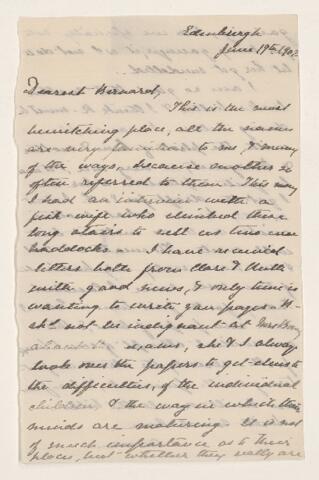 Edinburgh
June 19th 1902
Dearest Bernard,
This is the most
bewitching place, all the names
are very familiar to me, & many
of the ways, because mother so
often referred to them. This morn
I had an interview with a
fish wife who climbed three
long stairs to sell us two wee
haddocks. I have received
letters both from Clare & Ruth
with good news, & only time is
wanting to write you pages.
shd. not be indignant at
names, she & I always
look over the papers to get clues to
the difficulties, of the individual
children, & the way in which their
minds are maturing. It is not
of much importance as to their
places, but whether they really are